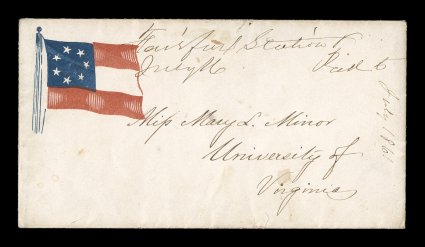 Fairfax Station V
July 16 Paid 5
Miss Mary L. Minor
University of
Virginia
July 1861